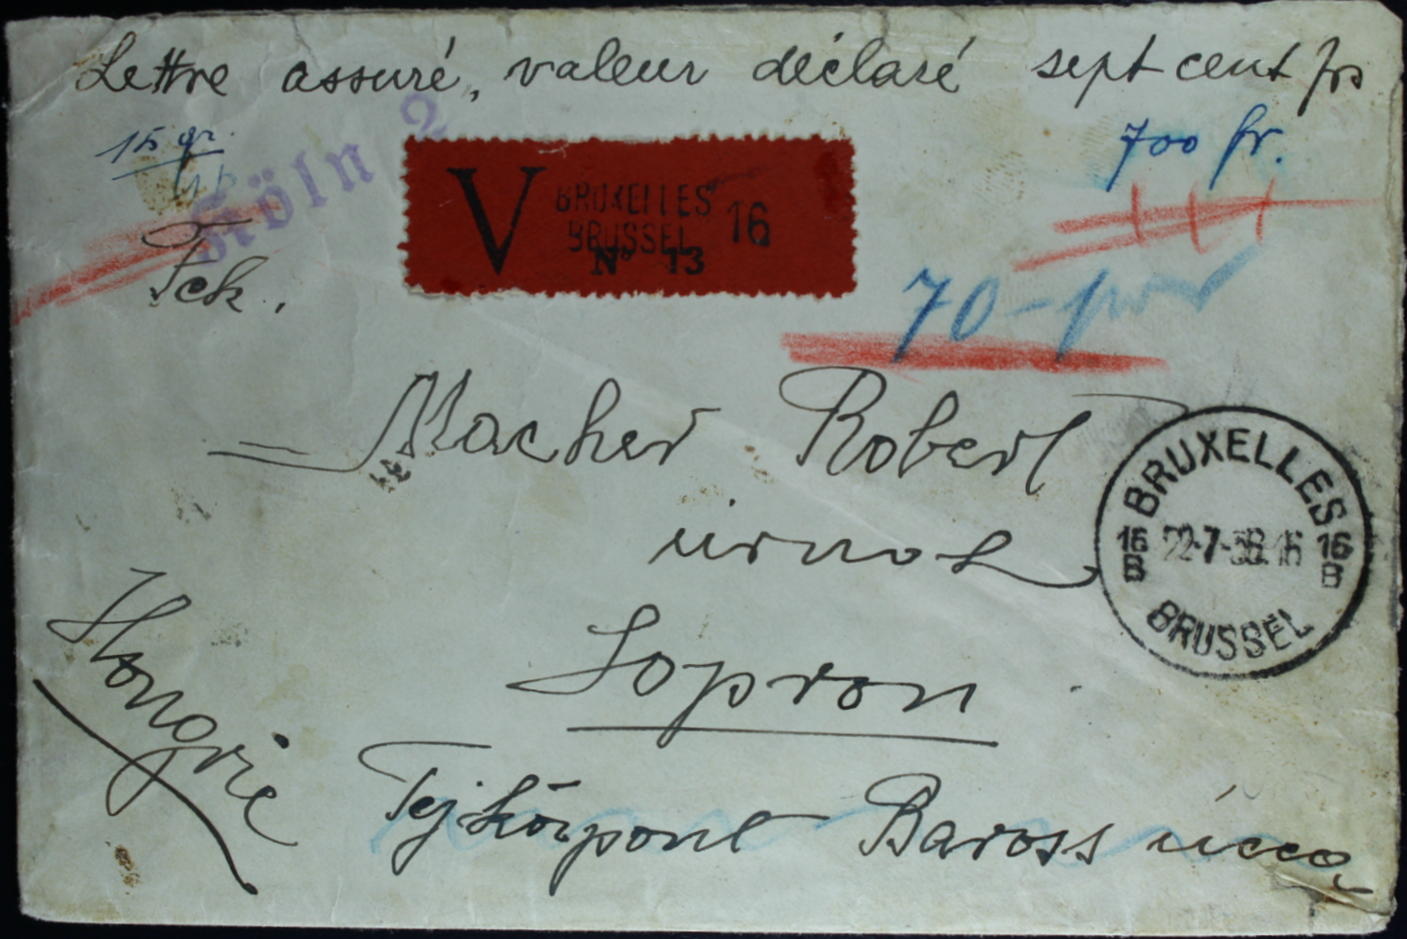 Lettre assuré, valeur déclaré sept cent frs
15 gr.
700 fr.
Köln 2
V BRUXELLES
BRUSSEL 16
Nº 13
Tek.
70-
Macher Robert
úrnak
Sopron
Hongrie
Tejközpont Baross ucca
BRUXELLES
16 B 22-7-38.16 16 B
BRUSSEL